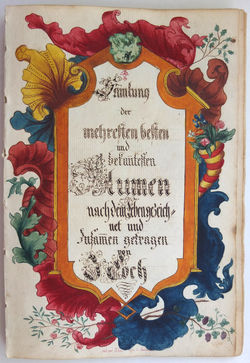 Samlung
der
mehresten besten
und
bekantesten
Blumen
nach dem Leben gezeich-
net und
Zusamen getragen
von